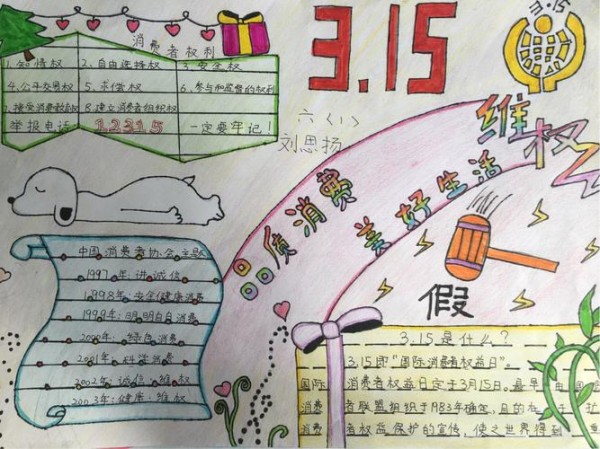 消费者权利
1.知情权 2.自由选择权 3.安全权
4.公平交易权 5.求偿权 6.参与和监督的权利
7.接受消费教育权 8.建立消费者组织权
举报电话 12315 一定要牢记!
3.15
3·15
六〈1〉
刘思扬
维权
品质消费
美好生活
假
中国消费者协会主题
1997年:讲诚信
1998年:安全健康消费
1999年:明明白白消费
2000年:绿色消费
2001年:科学消费
2002年:诚信:维权
2003年:健康:维权
3.15是什么?
3.15即“国际消费者权益日”
国际消费者权益日定于3月15日,最早由国
消费者联盟组织于1983年确定,目的在于扩
消费者权益保护的宣传,使之世界得到重